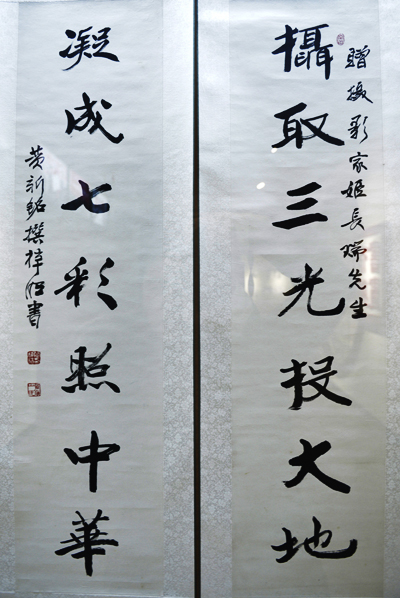 贈摄影家姬長瑞先生
攝取三光投大地
凝成七彩照中華
黄新銘撰梓書